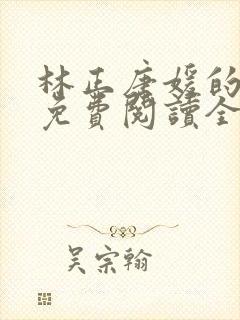 林正唐媛的
免費閱讀全
吴宗翰